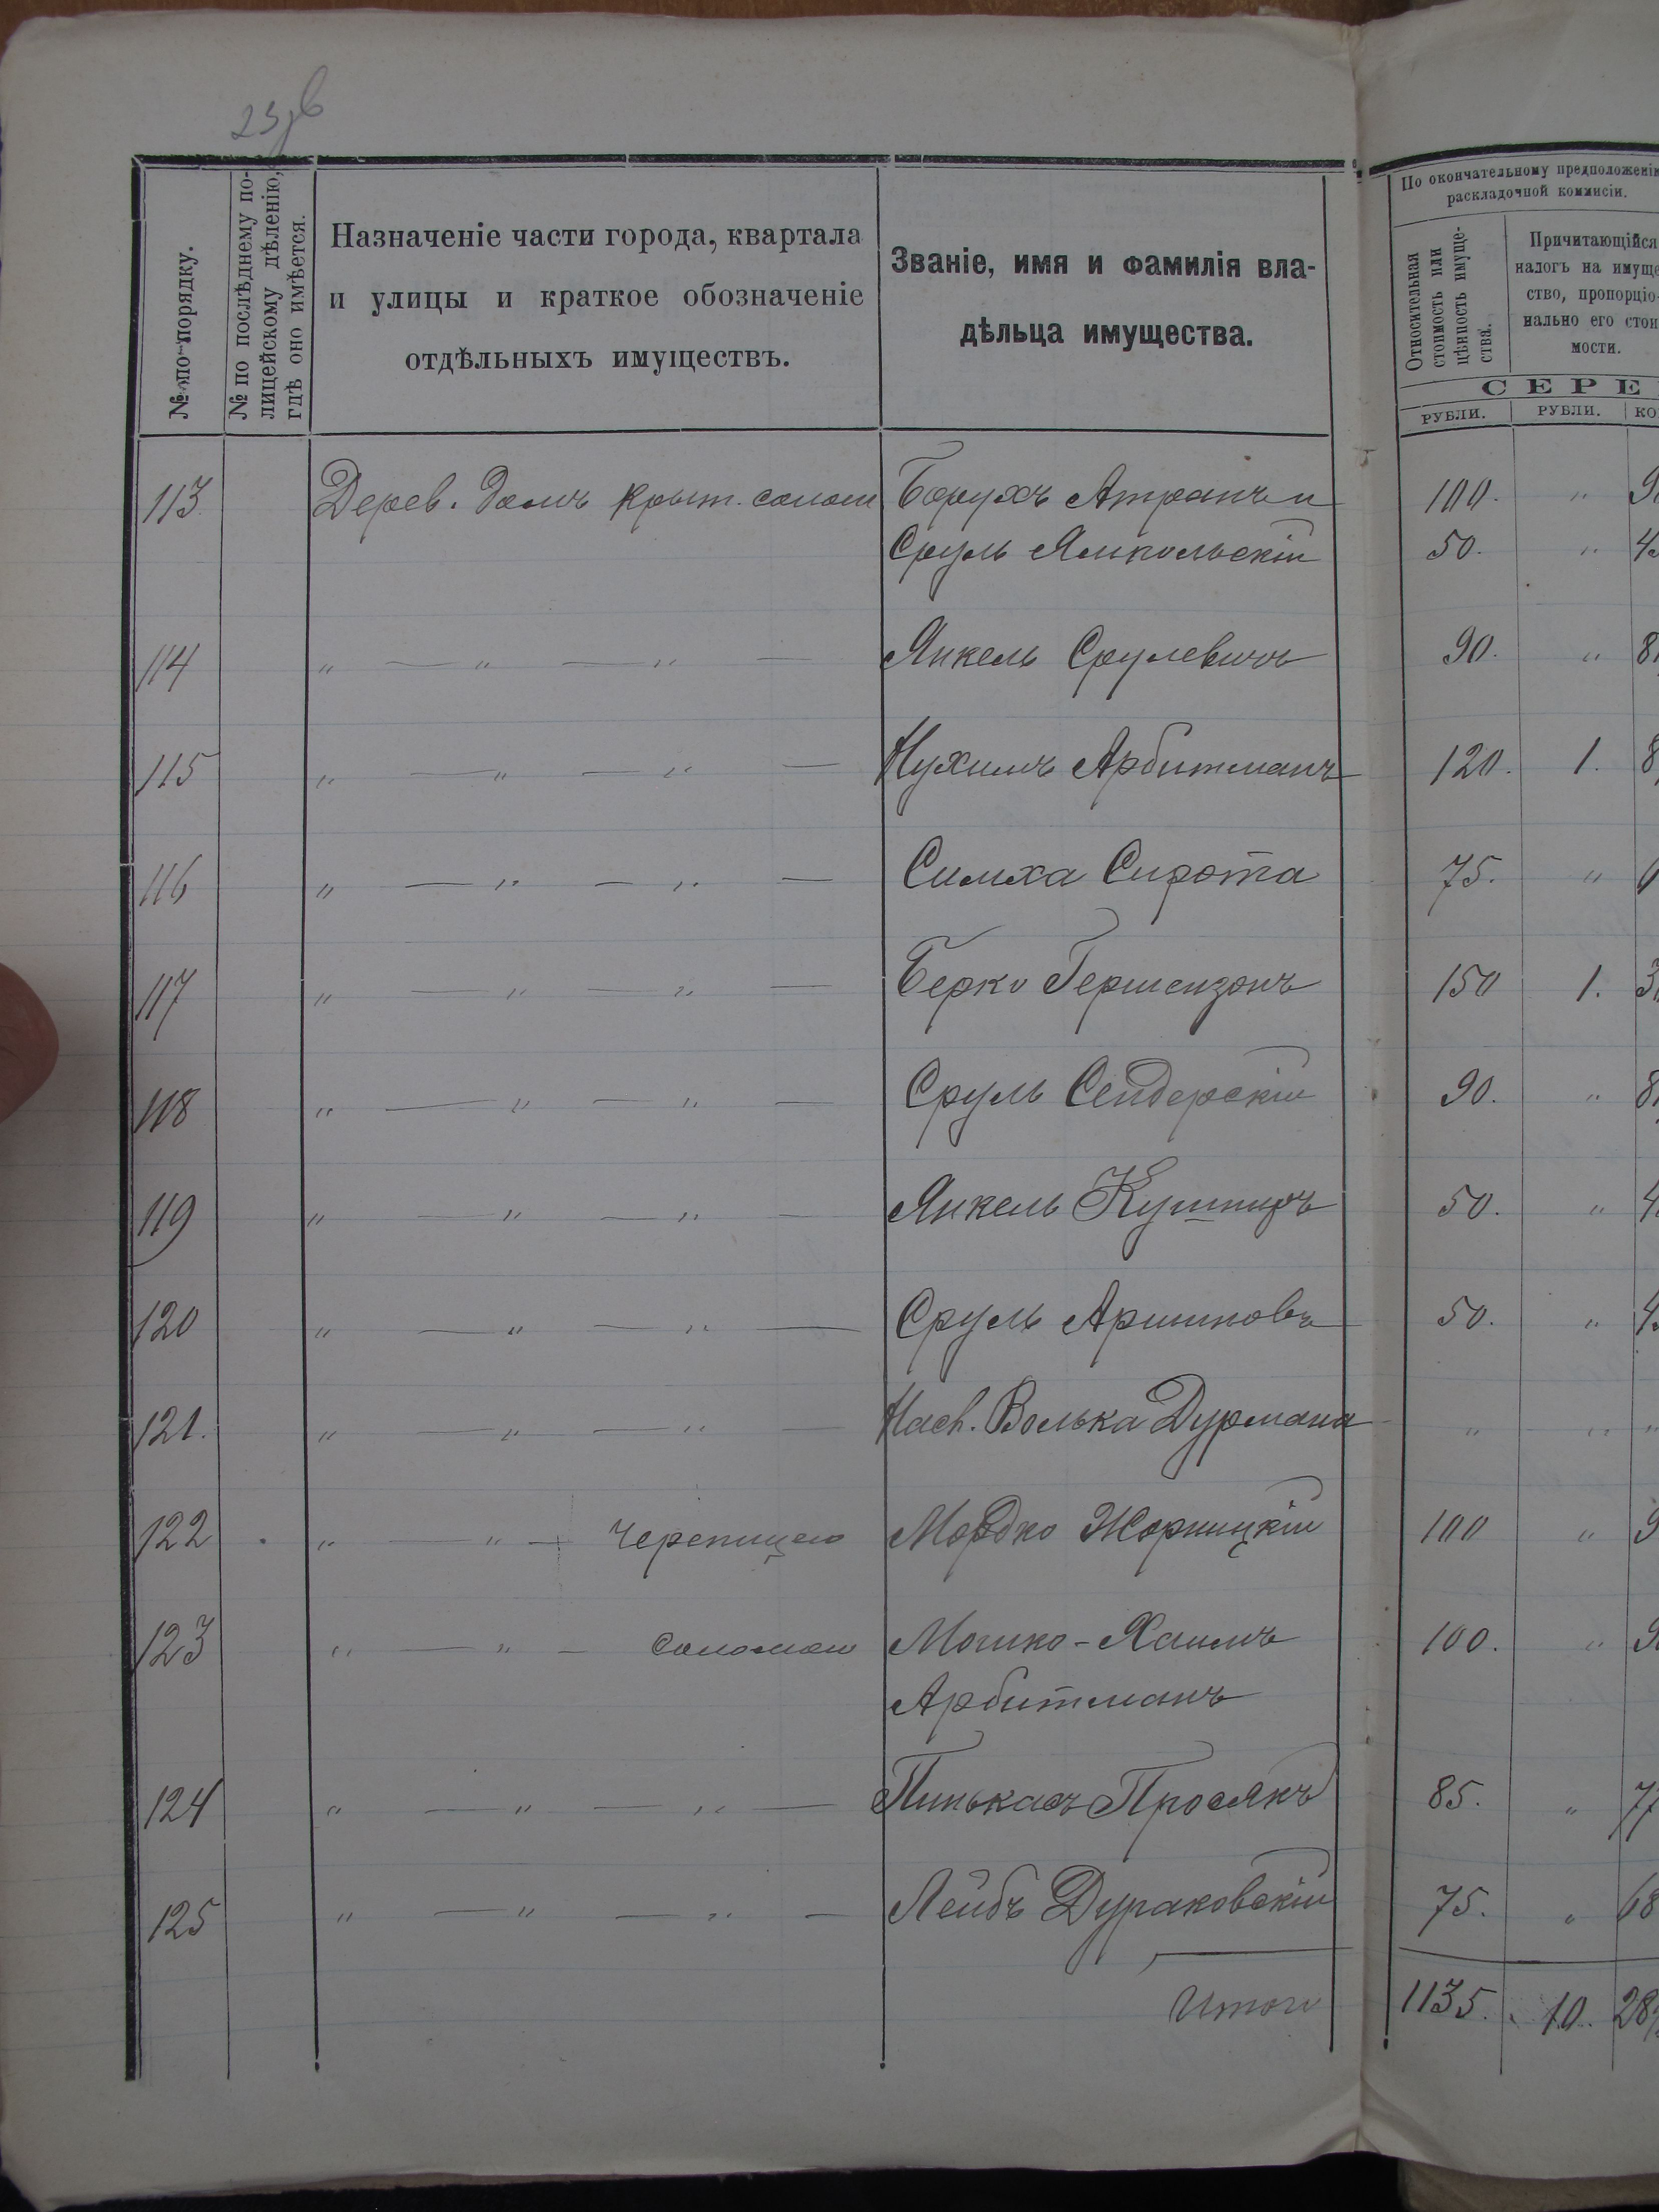 23 об
№ по порядку.
№ по послѣднему по-
лицейскому дѣленію,
гдѣ оно имѣется.
Назначеніе части города, квартала
и улицы и краткое обозначеніе
отдѣльныхъ имуществъ.
Званіе, имя и фамилія вла-
дѣльца имущества.
По окончательному предположенію
раскладочной коммисіи.
Относительная
стоимость или
цѣнность имуще-
ства.
Причитающійся
налогъ на имуще
ство, пропорціо-
нально его стои
мости.
СЕРЕ
РУБЛИ. РУБЛИ. КО
113 Дерев. домъ крыт. солом Борухъ Атранъ и 100. " 9
Сруль Ямпольскій 50. " 45
114 " — " — " — Янкель Срулевичъ 90. " 8
115 " — " — " — Нухимъ Арбитманъ 120. 1. 8
116 " — " — " — Симха Сирота 75. " 6
117 " — " — " — Берко Гершензонъ 150 1. 3
118 " — " — " — Сруль Сендерскій 90. " 8
119 " — " — " — Янкель Кушниръ 50. " 4
120 " — " — " — Сруль Аршиновъ 50. " 4
121. " — " — " — Насл. Волька Дурмана " " "
122 " — " — Черепицею Мордко Жорницкій 100 " 9
123 " — " — Соломою Мошко-Хаимъ 100. " 9
Арбитманъ
124 " — " — " — Пинькасъ Просякъ 85. " 77
125 " — " — " — Лейбъ Дураковскій 75. " 68
Итого 1135. 10. 28